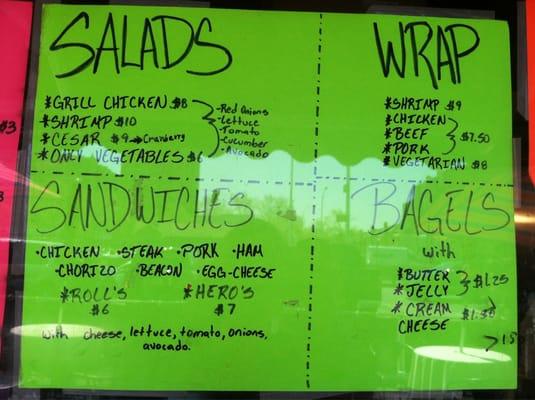 SALADS
*GRILL CHICKEN $8
*SHRIMP $10
*CESAR $9 → Cranberry
*ONLY VEGETABLES $6
-Red Onions
-lettuce
-Tomato
-Cucumber
-Avocado
WRAP
*SHRIMP $9
*CHICKEN
*BEEF
*PORK
$7.50
*VEGETARIAN $8
SANDWICHES
·CHICKEN ·STEAK ·PORK ·HAM
·CHORIZO ·BEACON ·EGG-CHEESE
*ROLL'S *HERO'S
$6 $7
with cheese, lettuce, tomato, onions,
avocado.
BAGELS
with
*BUTTER
*JELLY
$1.25
*CREAM
CHEESE
$3